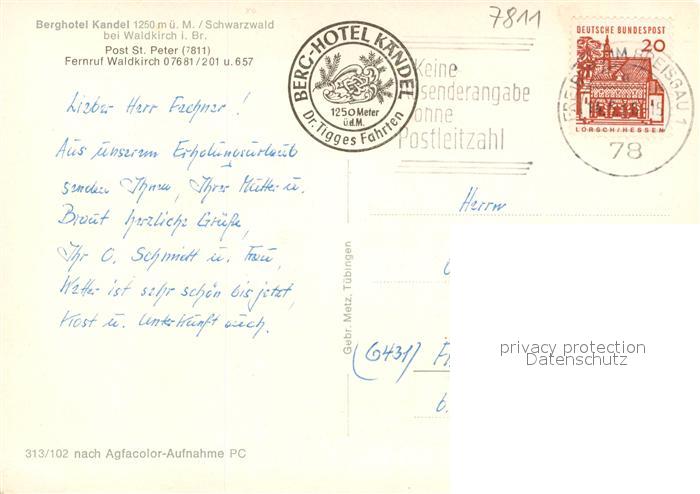 Berghotel Kandel 1250 m ü. M. / Schwarzwald
bei Waldkirch i. Br.
Post St. Peter (7811)
Fernruf Waldkirch 07681/201 u. 657
7811
BERG-HOTEL KANDEL
1250 Meter
ü.d.M.
Dr. Tigges Fahrten
Keine
senderangabe
ohne
Postleitzahl
DEUTSCHE BUNDESPOST
20
LORSCH/HESSEN
BREISGAU 1
78
Lieber Herr Fechner!
Aus unserem Erholungsurlaub
senden Ihnen, Ihrer Mutter u.
Braut herzliche Grüße,
Ihr O. Schmidt u. Frau,
Wetter ist sehr schön bis jetzt,
Kost u. Unterkunft auch.
Herrn
(6431)
b.
Gebr. Metz, Tübingen
privacy protection
Datenschutz
313/102 nach Agfacolor-Aufnahme PC